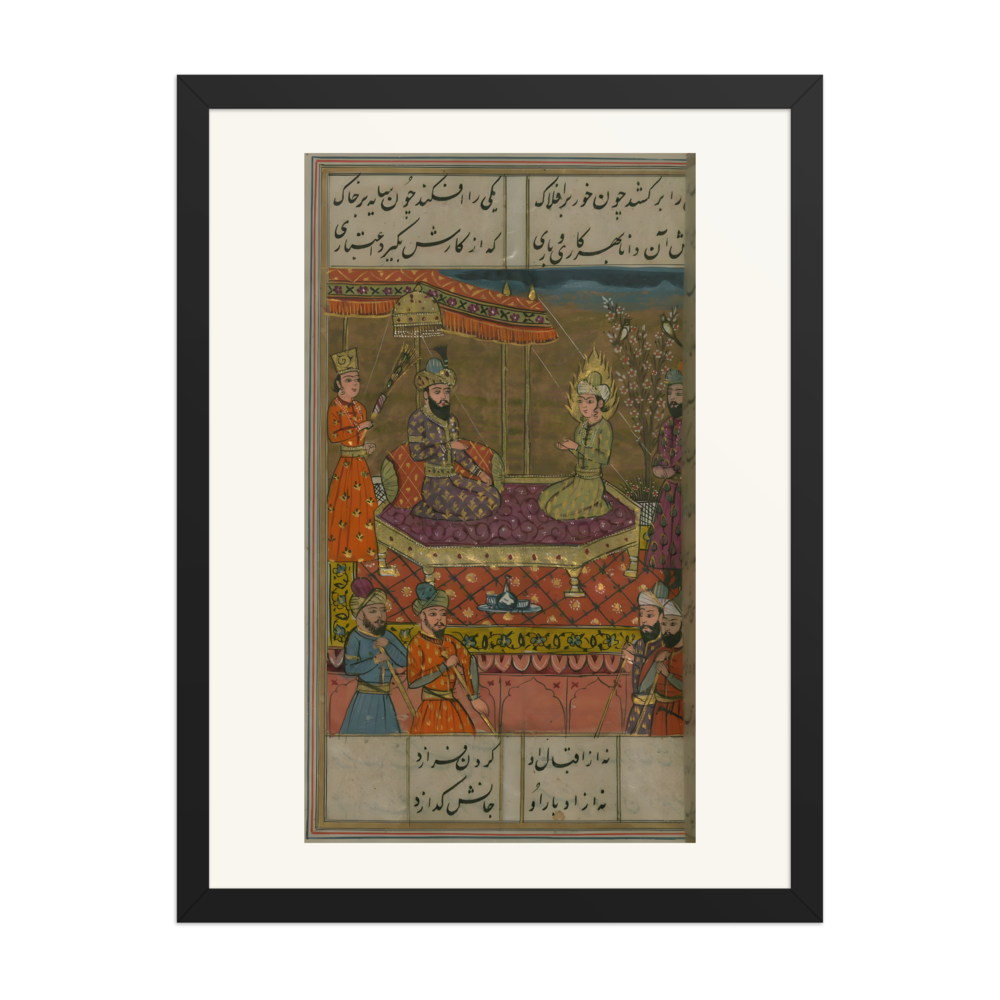 را بر کشد چون خور بر افلاک یکی را افکند چون سایه بر خاک
ش آن دانا بهر کاری و باری که از کارش بگیرد اعتباری
نه از اقبال او گردن فرازد
نه از ادبار او جانش گدازد